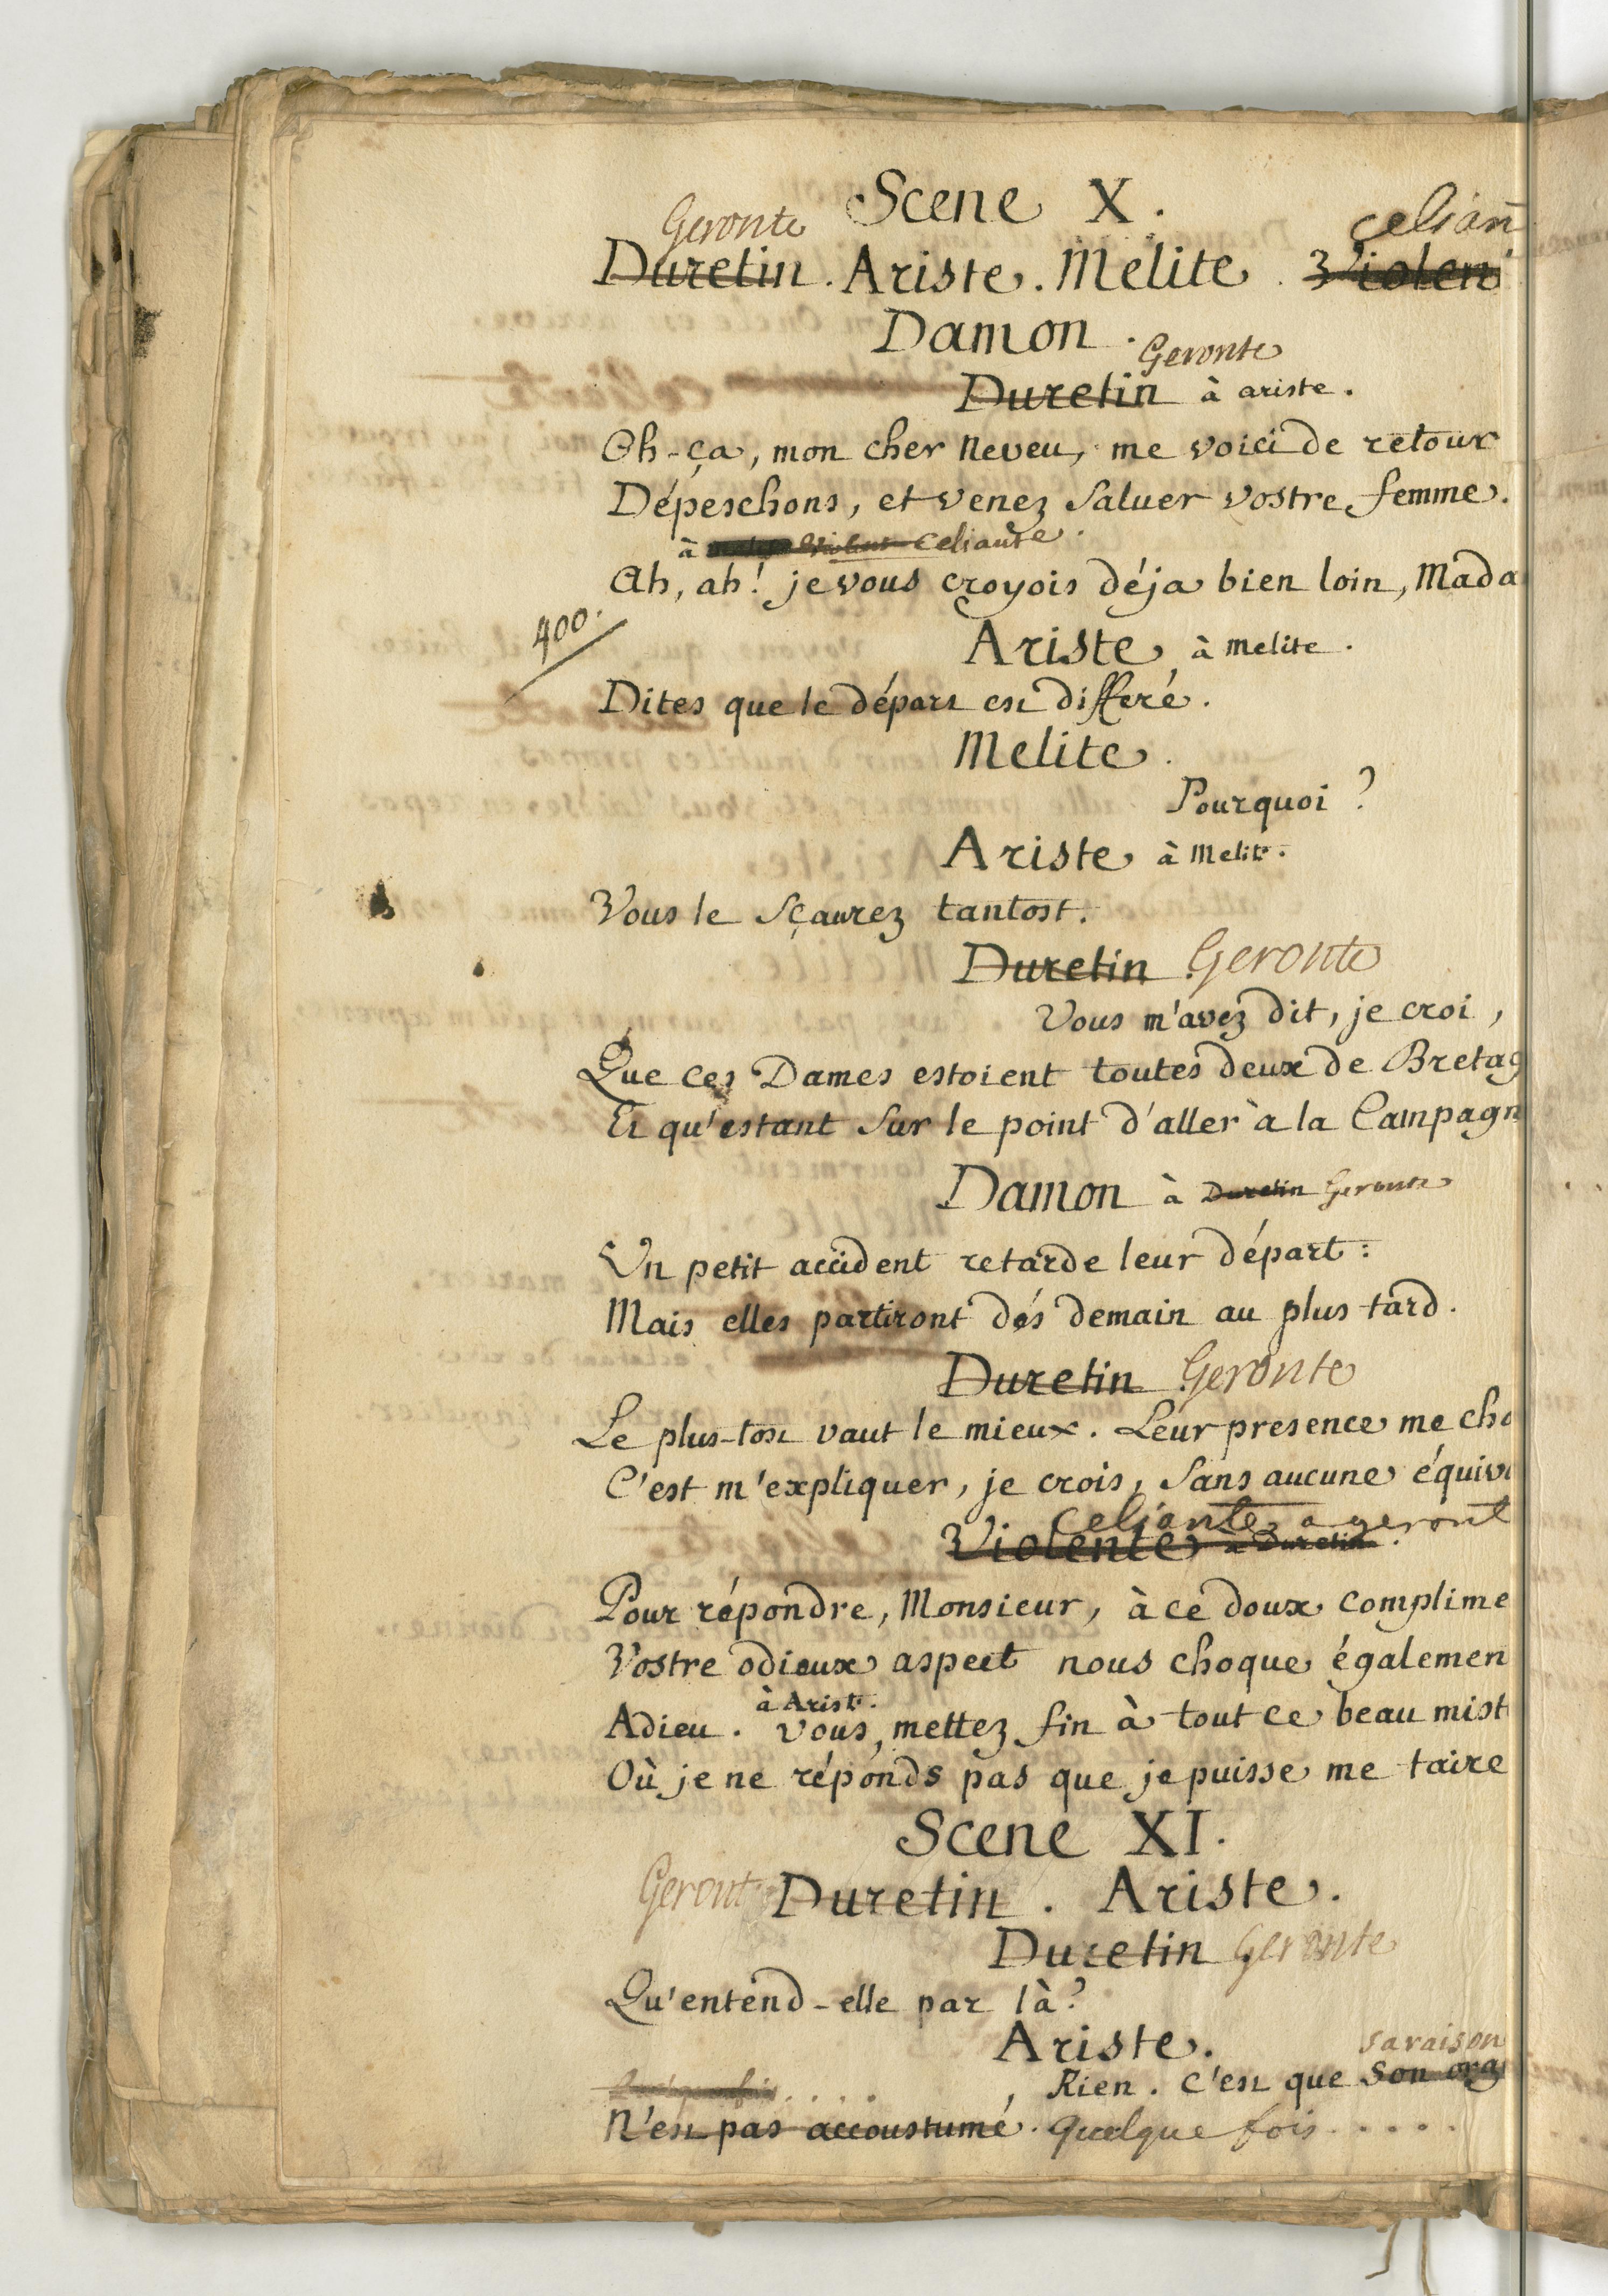 Scene X.
Geronte celian
Duretin. Ariste. Melite. Violen
Damon.
Geronte
Duretin à ariste.
Oh-ça, mon cher Neveu, me voici de retour
Dépeschons, et venez saluer vostre femme.
à Celiante.
Ah, ah! je vous croyois déja bien loin, Mada
400.
Ariste à melite.
Dites que le départ est differé.
Melite.
Pourquoi?
Ariste à Melite.
Vous le sçaurez tantost.
Duretin Geronte
Vous m'avez dit, je croi,
Que ces Dames estoient toutes deux de Bretag
Et qu'estant sur le point d'aller à la Campagn
Damon à Duretin Geronte
Un petit accident retarde leur départ:
Mais elles partiront dés demain au plus tard.
Duretin Geronte
Le plus-tost vaut le mieux. Leur presence me cho
C'est m'expliquer, je crois, sans aucune équivo
Celiante a geront
Violente a Duretin.
Pour répondre, Monsieur, à ce doux complime
Vostre odieux aspect nous choque égalemen
à Ariste.
Adieu. Vous, mettez fin à tout ce beau mist
Où je ne réponds pas que je puisse me taire
Scene XI.
Geront Duretin. Ariste.
Duretin Geronte
Qu'entend-elle par là?
Ariste.
sa raison
..... Rien. C'est que son org
N'est pas accoustumé. quelque fois.....